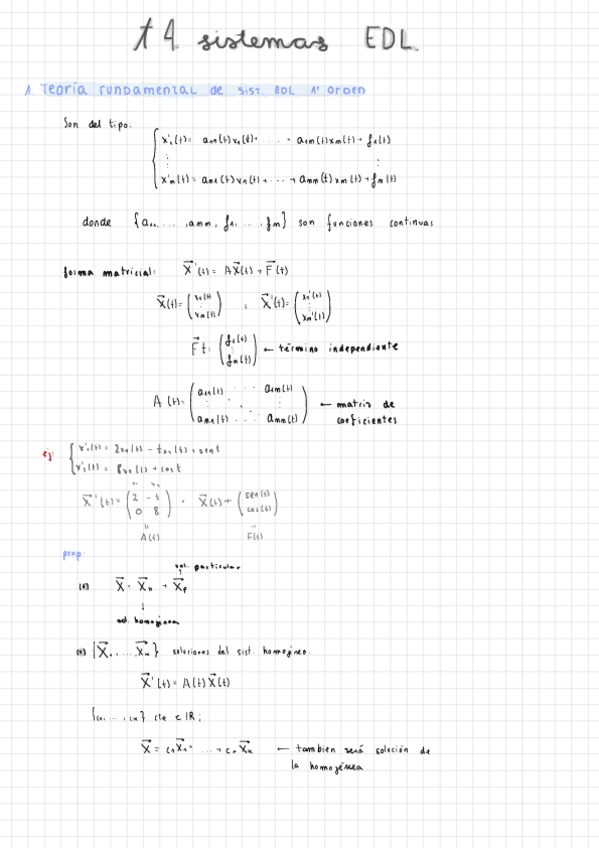 t 4. sistemas EDL.
1. Teoría fundamental de sist. EDL 1º orden
Son del tipo:
x'₁(t) = a₁₁(t)x₁(t)+ ..... + a₁m(t)xm(t) + f₁(t)
⋮ ⋮
x'm(t) = am₁(t)x₁(t) + ... + amm(t)xm(t) + fm(t)
donde {a₁₁, ..., amm, f₁, ..., fm} son funciones continuas
forma matricial: X⃗'(t) = AX⃗(t) + F⃗(t)
X⃗(t) = (x₁(t) ⋮ xm(t)) , X⃗'(t) = (x₁'(t) ⋮ xm'(t))
F⃗t: (f₁(t) ⋮ fm(t)) ← término independiente
A(t) = (a₁₁(t) ... a₁m(t) ⋮ ⋱ ⋮ am₁(t) ... amm(t)) ← matriz de coeficientes
ej: x'₁(t) = 2x₁(t) - tx₂(t) + sent
x'₂(t) = 8x₂(t) + cost
x₁ x₂
X⃗'(t) = (2 -t 0 8) · X⃗(t) + (sen(t) cos(t))
" "
A(t) F(t)
prop:
sol. particular
↑
X⃗ = X⃗h + X⃗p
↓
sol. homogénea
{X⃗₁, ..., X⃗k} soluciones del sist. homogéneo.
X⃗'(t) = A(t)X⃗(t)
{c₁, ..., ck} cte ∈ ℝ;
X⃗ = c₁X⃗₁ + ... + ckX⃗k ← tambien será solución de
la homogénea